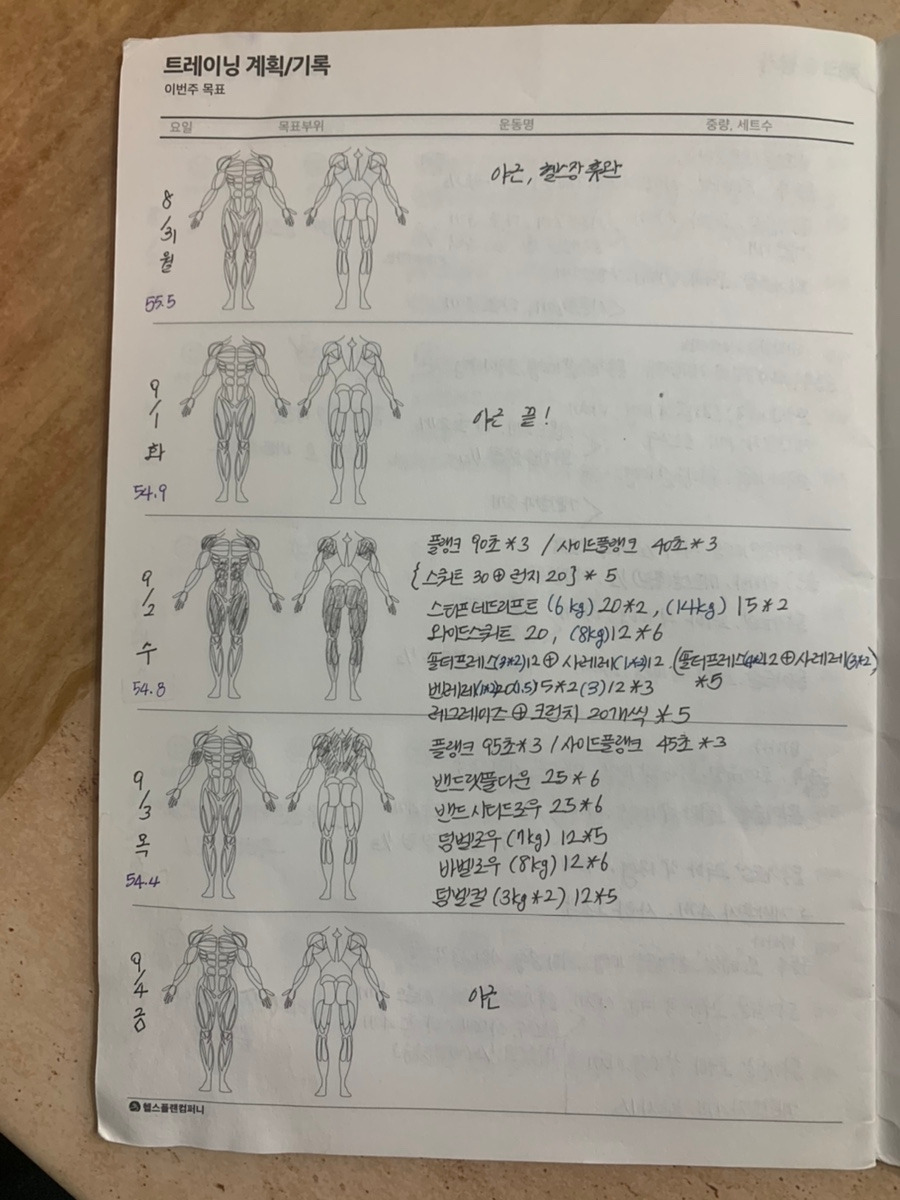 트레이닝 계획/기록
이번주 목표
요일 목표부위 운동명 중량, 세트수
8/31 월
55.5
야근, 헬스장 휴관
9/1 화
54.9
야근 끝!
9/2 수
54.8
플랭크 90초*3 / 사이드플랭크 40초*3
{스쿼트 30⊕런지 20} * 5
스티프데드리프트 (6kg) 20*2, (14kg) 15*2
와이드스쿼트 20, (8kg)12*6
숄더프레스(3*2)12⊕사레레(1*2)12, (숄더프레스(4*2)12⊕사레레(3*2)
*5
벤레레(1*2)20(1.5)15*2(3)12*3
레그레이즈⊕크런치 20개씩 *5
9/3 목
54.4
플랭크 95초*3 / 사이드플랭크 45초*3
밴드랫풀다운 25*6
밴드시티드로우 25*6
덤벨로우 (7kg) 12*5
바벨로우 (8kg) 12*6
덤벨컬 (3kg*2) 12*5
9/4 금
야근
헬스플랜컴퍼니